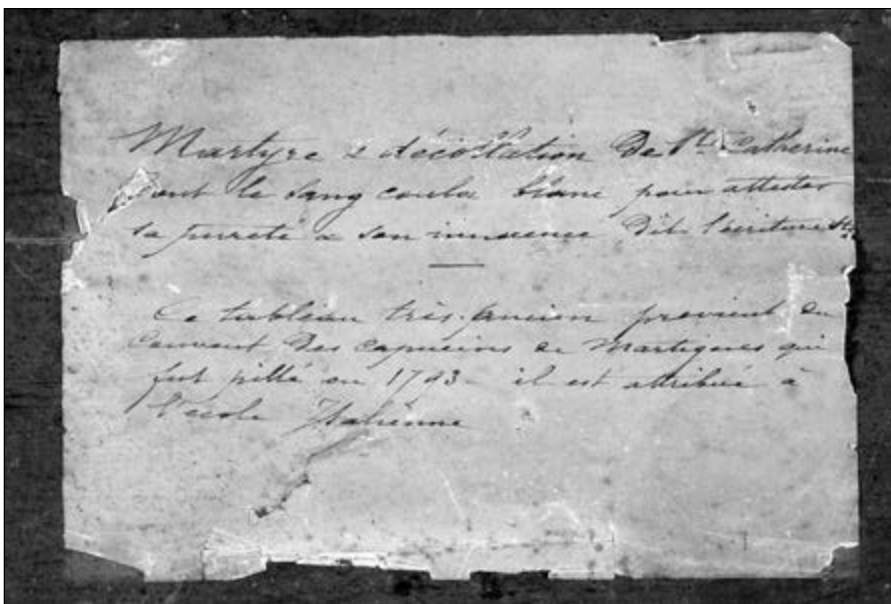 Martyre & décollation de Ste Catherine
dont le sang coula blanc pour attester
sa pureté & son innocence dit l'écriture Ste
Ce tableau très ancien provient du
Couvent des capucins de Martigues qui
fut pillé en 1793 il est attribué à
l'école Italienne